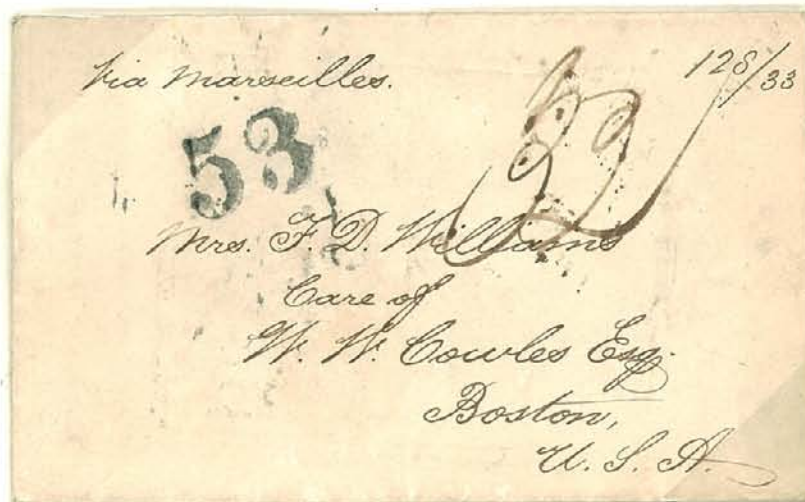 Via Marseilles.
128/33
53
Mrs. F. D. Williams
Care of
W. W. Cowles Esq.
Boston,
U. S. A.